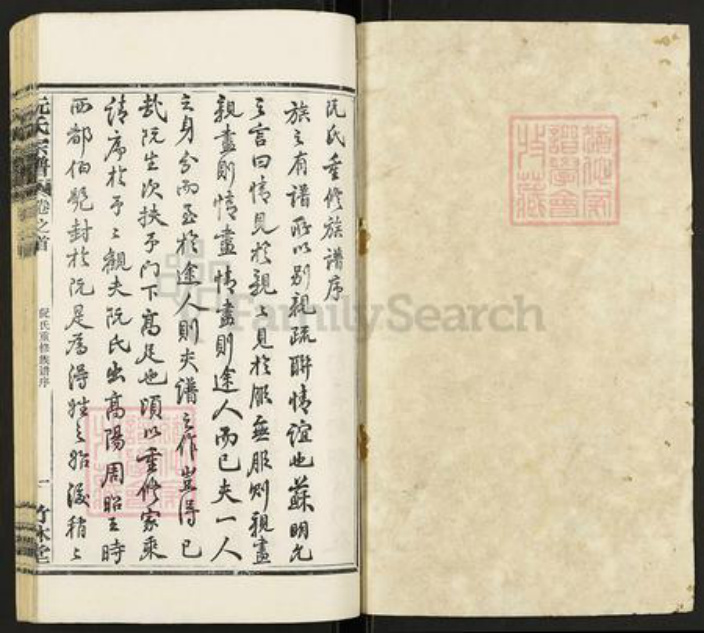 阮氏重修族譜序
族之有譜所以别親疏聯情誼也蘇明允
之言曰情見於親親見於服無服則親盡
親盡則情盡情盡則途人而已夫一人
之身分而至於途人則夫譜之作豈得已
哉阮生次扶予門下高足也頃以重修家乘
請序於予予觀夫阮氏出高陽周昭王時
西都伯髡封於阮是為得姓之始後稍稍
阮氏宗譜
卷之首
阮氏重修族譜序
一
竹林堂
FamilySearch